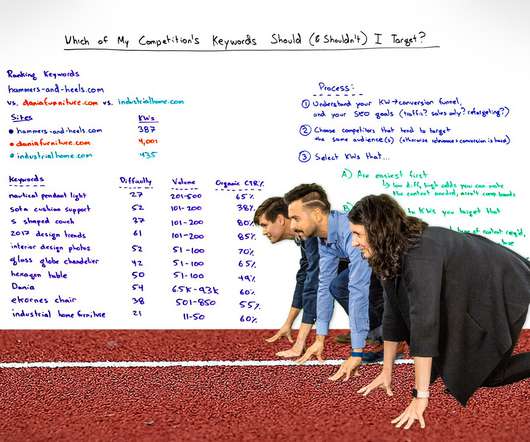 Which of My Competition's Keywords Should (& Shouldn't) I Target?
Ranking Keywords
hammers-and-heels.com
vs. daniafurniture.com vs. industrialhome.com
Sites KWs
hammers-and-heels.com 387
daniafurniture.com 4,001
industrialhome.com 435
Keywords Difficulty Volume Organic CTR%
nautical pendant light 27 201-500 65%
sofa cushion support 52 101-200 38%
s shaped couch 37 101-200 80%
2017 design trends 61 101-200 85%
interior design photos 52 51-100 70%
glass globe chandelier 42 51-100 65%
hexagon table 50 51-100 49%
Dania 54 6.5K-9.3K 60%
ekornes chair 38 501-850 55%
industrial home furniture 21 11-50 60%
Process:
① Understand your KW→conversion funnel,
and your SEO goals (traffic? sales only? retargeting?)
② Choose competitors that tend to target
the same audience(s) (otherwise relevance + conversion is hard)
③ Select KWs that...
A) Are easiest first
↳ low diff, high odds you can make
the content needed, aren't comp brands
B)
to KWs you target that